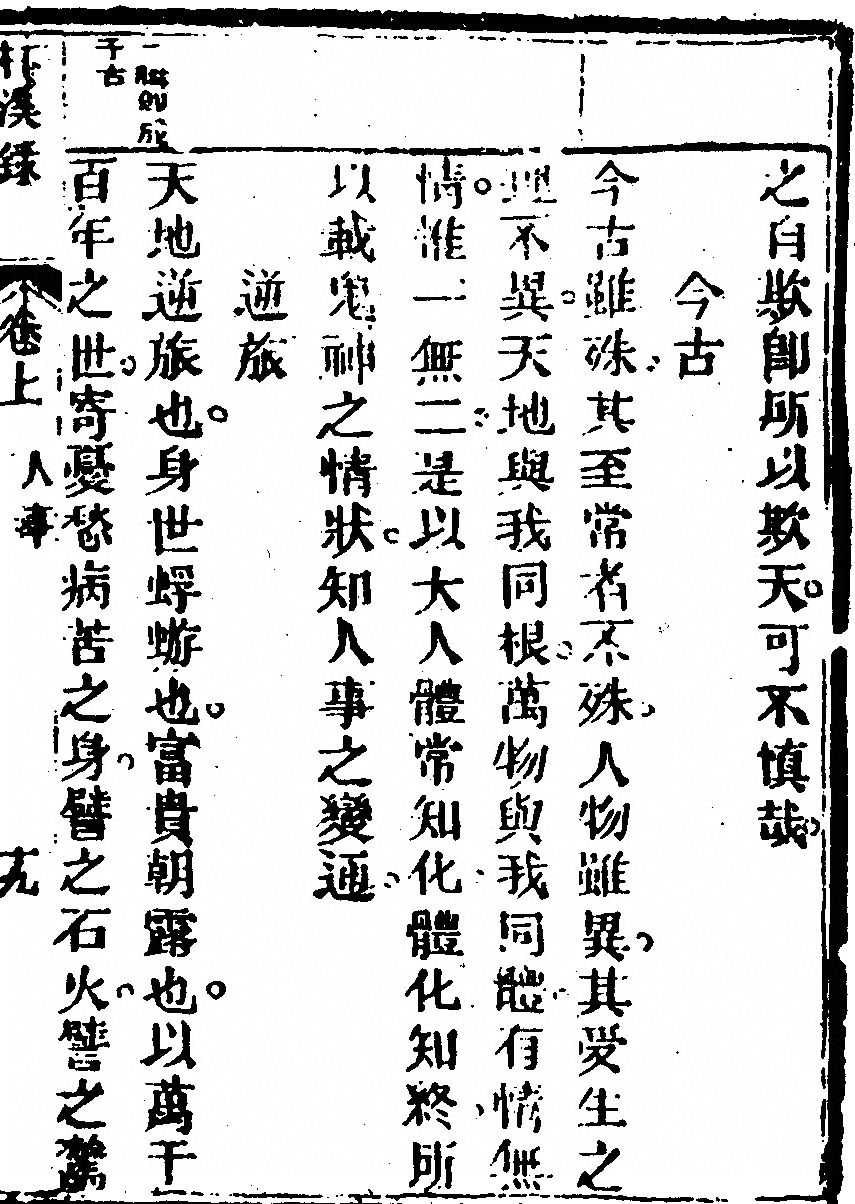 之自欺卽所以欺天可不慎哉
今古
今古雖殊其至常者不殊人物雖異其受生之
理不異天地與我同根萬物與我同體有情無
情惟一無二是以大人體常知化體化知終所
以載鬼神之情狀知人事之變通
逆旅
一聯則成
千古
天地逆旅也身世蜉蝣也富貴朝露也以萬千
百年之世寄憂愁病苦之身譬之石火譬之驚
溪錄
卷上
人事
十九